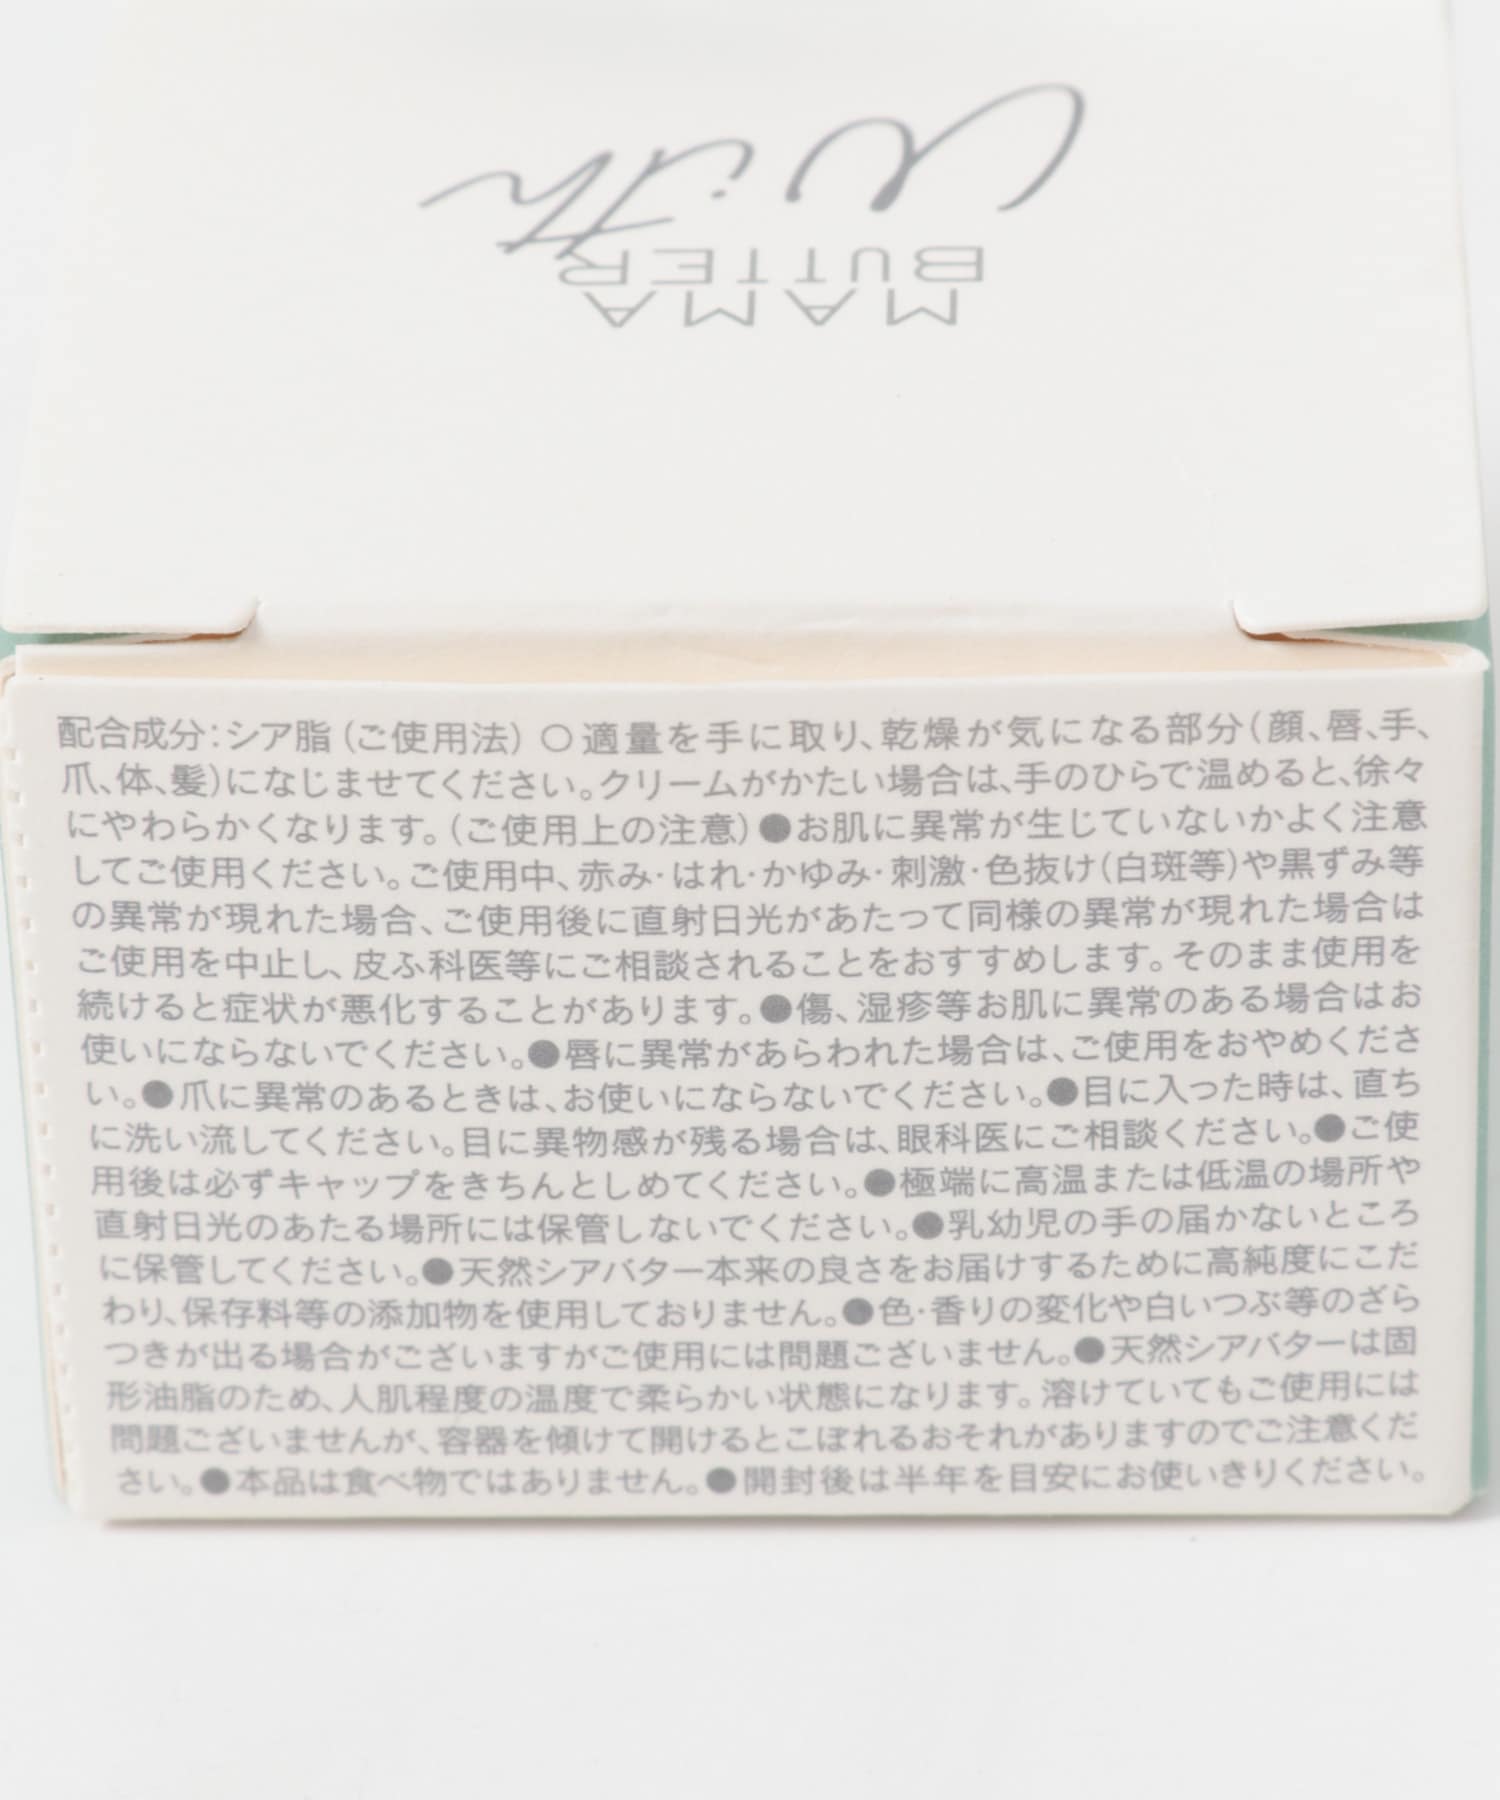 With
BUTTER
MAMA
配合成分：シア脂（ご使用法）○適量を手に取り、乾燥が気になる部分（顔、唇、手、
爪、体、髪）になじませてください。クリームがかたい場合は、手のひらで温めると、徐々
にやわらかくなります。（ご使用上の注意）●お肌に異常が生じていないかよく注意
してご使用ください。ご使用中、赤み・はれ・かゆみ・刺激・色抜け（白斑等）や黒ずみ等
の異常が現れた場合、ご使用後に直射日光があたって同様の異常が現れた場合は
ご使用を中止し、皮ふ科医等にご相談されることをおすすめします。そのまま使用を
続けると症状が悪化することがあります。●傷、湿疹等お肌に異常のある場合はお
使いにならないでください。●唇に異常があらわれた場合は、ご使用をおやめくださ
い。●爪に異常のあるときは、お使いにならないでください。●目に入った時は、直ち
に洗い流してください。目に異物感が残る場合は、眼科医にご相談ください。●ご使
用後は必ずキャップをきちんとしめてください。●極端に高温または低温の場所や
直射日光のあたる場所には保管しないでください。●乳幼児の手の届かないところ
に保管してください。●天然シアバター本来の良さをお届けするために高純度にこだ
わり、保存料等の添加物を使用しておりません。●色・香りの変化や白いつぶ等のざら
つきが出る場合がございますがご使用には問題ございません。●天然シアバターは固
形油脂のため、人肌程度の温度で柔らかい状態になります。溶けていてもご使用には
問題ございませんが、容器を傾けて開けるとこぼれるおそれがありますのでご注意くだ
さい。●本品は食べ物ではありません。●開封後は半年を目安にお使いきりください。